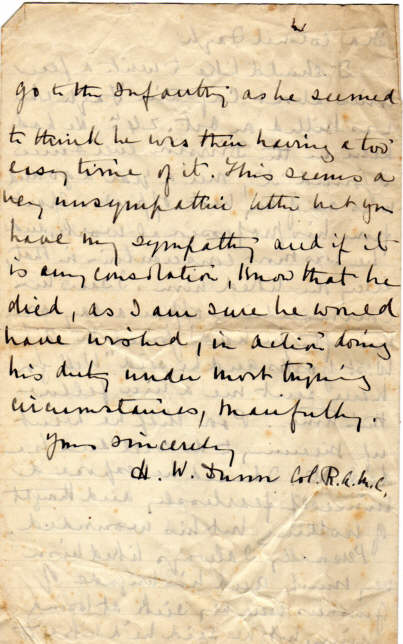 go to the Infantry as he seemed
to think he was then having a too
easy time of it. This seems a
very unsympathetic letter but you
have my sympathy and if it
is any consolation, know that he
died, as I am sure he would
have wished, in action doing
his duty under most trying
circumstances, manfully.
Yours sincerely
H. W. Dunn Col. R.A.M.C.